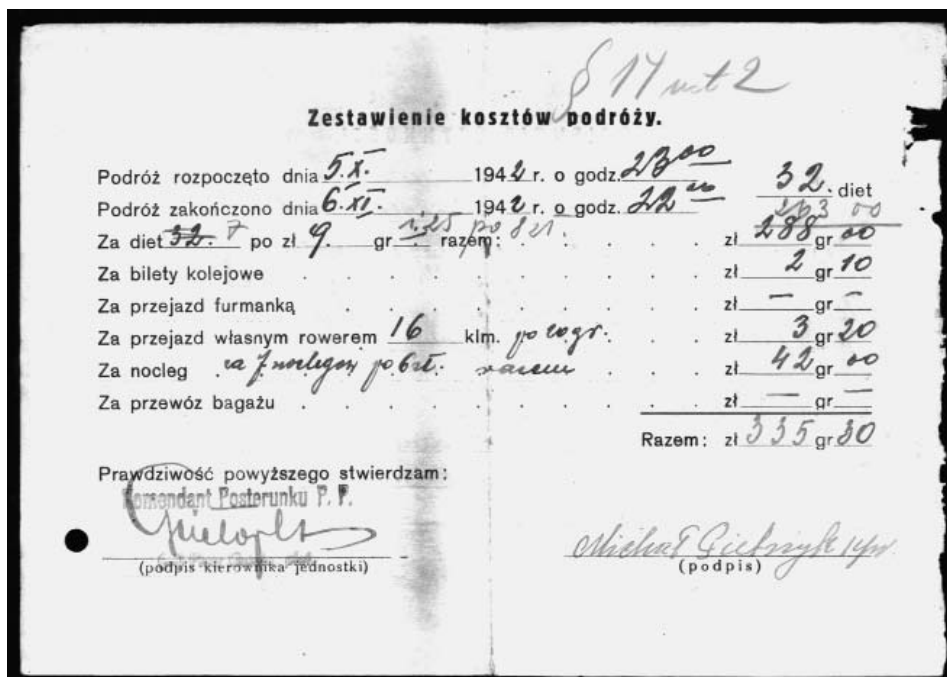 § 14 ust 2
Zestawienie kosztów podróży.
Podróż rozpoczęto dnia 5.X. 1942 r. o godz. 23 00
32. diet
Podróż zakończono dnia 6.XI. 1942 r. o godz. 22 00
Za diet 32. 7 po zł 9. gr razem: zł 288 gr 00
Za bilety kolejowe zł 2 gr 10
Za przejazd furmanką zł — gr —
Za przejazd własnym rowerem 16 klm. po 20 gr. zł 3 gr 20
Za nocleg za 7 noclegów po 6 zł. razem zł 42 gr 00
Za przewóz bagażu zł — gr —
Razem: zł 335 gr 30
Prawdziwość powyższego stwierdzam:
Komendant Posterunku P. P.
Michał
(podpis kierownika jednostki) (podpis)